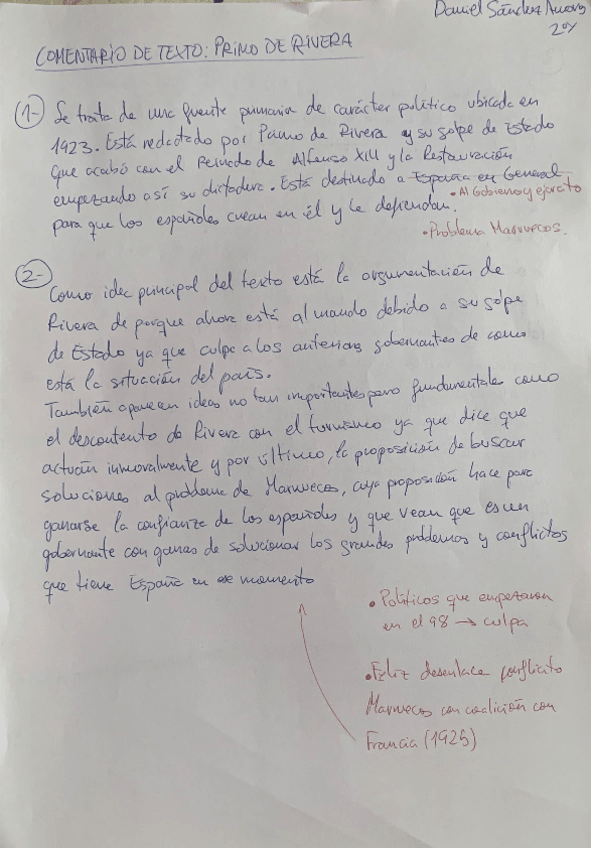 Daniel Sánchez
2ºY
COMENTARIO DE TEXTO: PRIMO DE RIVERA
1- Se trata de una fuente primaria de carácter político ubicada en
1923. Está redactado por Primo de Rivera y su golpe de Estado
que acabó con el Reinado de Alfonso XIII y la Restauración
empezando así su dictadura. Está destinado a España en General
• Al Gobierno y ejército
para que los españoles crean en él y le defiendan.
• Problema Marruecos.
2- Como idea principal del texto está la argumentación de
Rivera de porque ahora está al mando debido a su golpe
de Estado ya que culpa a los anteriores gobernantes de como
está la situación del país.
También aparecen ideas no tan importantes pero fundamentales como
el descontento de Rivera con el turnismo ya que dice que
actúan inmoralmente y por último, la proposición de buscar
soluciones al problema de Marruecos, cuya proposición hace para
ganarse la confianza de los españoles y que vean que es un
gobernante con ganas de solucionar los grandes problemas y conflictos
que tiene España en ese momento
• Políticos que empezaron
en el 98 → culpa
• Feliz desenlace conflicto
Marruecos con coalición con
Francia (1925)